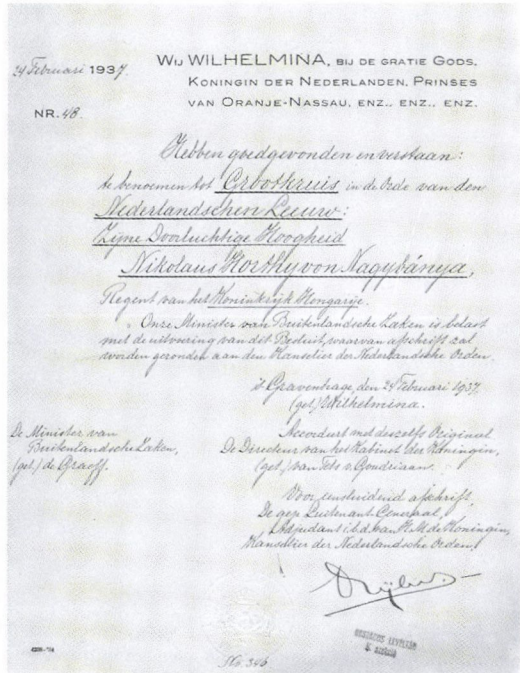 24 Februari 1937.
WIJ WILHELMINA, BIJ DE GRATIE GODS,
KONINGIN DER NEDERLANDEN, PRINSES
VAN ORANJE-NASSAU, ENZ., ENZ., ENZ.
NR. 48.
Hebben goedgevonden en verstaan:
te benoemen tot Grootkruis in de Orde van den
Nederlandschen Leeuw:
Zijne Doorluchtige Hoogheid
Nikolaus Horthy von Nagybánya,
Regent van het Koninkrijk Hongarije.
Onze Minister van Buitenlandsche Zaken is belast
met de uitvoering van dit Besluit, waarvan afschrift zal
worden gezonden aan den Kanselier der Nederlandsche Orden.
's Gravenhage, den 24 Februari 1937.
(get.) Wilhelmina.
De Minister van
Buitenlandsche Zaken,
(get.) de Graeff.
Accordeert met deszelfs Origineel
De Directeur van het Kabinet der Koningin,
(get.) van Tets v. Goudriaan.
Voor eensluidend afschrift
De gep. Luitenant-Generaal,
Adjudant i.b.d. van H.M. de Koningin,
Kanselier der Nederlandsche Orden,
No. 346